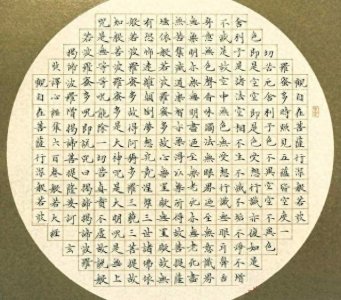 觀自在菩薩行深般若波
羅蜜多時照見五蘊皆空度一
切苦厄舍利子色不異空空不異色
色即是空空即是色受想行識亦復如是
舍利子是諸法空相不生不滅不垢不淨不增
不減是故空中無色無受想行識無眼耳鼻舌
身意無色聲香味觸法無眼界乃至無意識界
無無明亦無無明盡乃至無老死亦無老死盡
無苦集滅道無智亦無得以無所得故菩提薩
埵依般若波羅蜜多故心無罣礙無罣礙故無
有恐怖遠離顛倒夢想究竟涅槃三世諸佛依
般若波羅蜜多故得阿耨多羅三藐三菩提故
知般若波羅蜜多是大神咒是大明咒是無上
咒是無等等咒能除一切苦真實不虛故說般
若波羅蜜多咒即說咒曰揭諦揭諦波羅
揭諦波羅僧揭諦菩提薩婆訶 玄
譯心經集六百卷般若大經
觀自在菩薩行深般若波